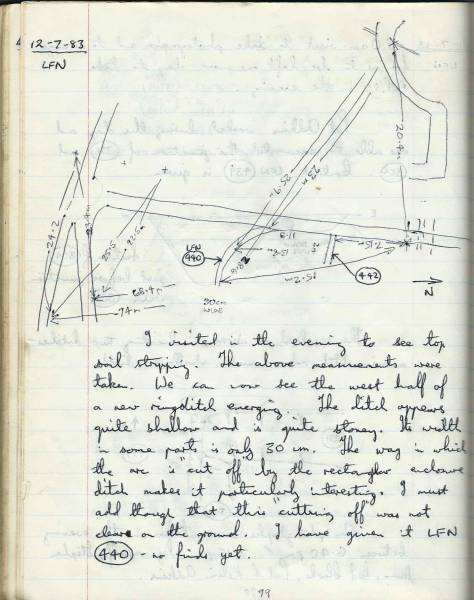 12-7-83
LFN
20.4m
25.9
23 m
24.2
25.5
22.5m
28.4m
74m
11.9
15.8m
2m
7.15m
28.6
15.2m
LFN
440
442
30cm
WIDE
N
I visited in the evening to see top
soil stripping. The above measurements were
taken. We can now see the west half of
a new ringditch emerging. The ditch appears
quite shallow and is quite stoney. Its width
in some parts is only 30 cm. The way in which
the arc is cut off by the rectangular enclosure
ditch makes it particularly interesting. I must
add though that this "cutting off" was not
clear on the ground. I have given it LFN
440 - no finds yet.
79